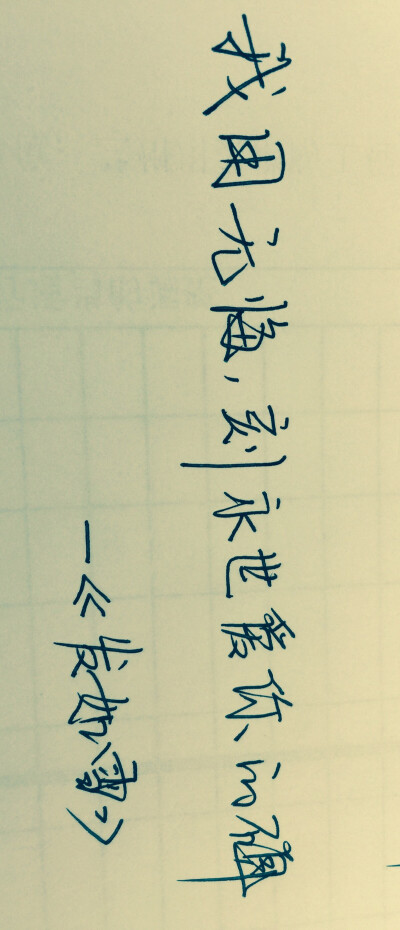 我用无悔,刻永世爱你的碑
—《发如雪》